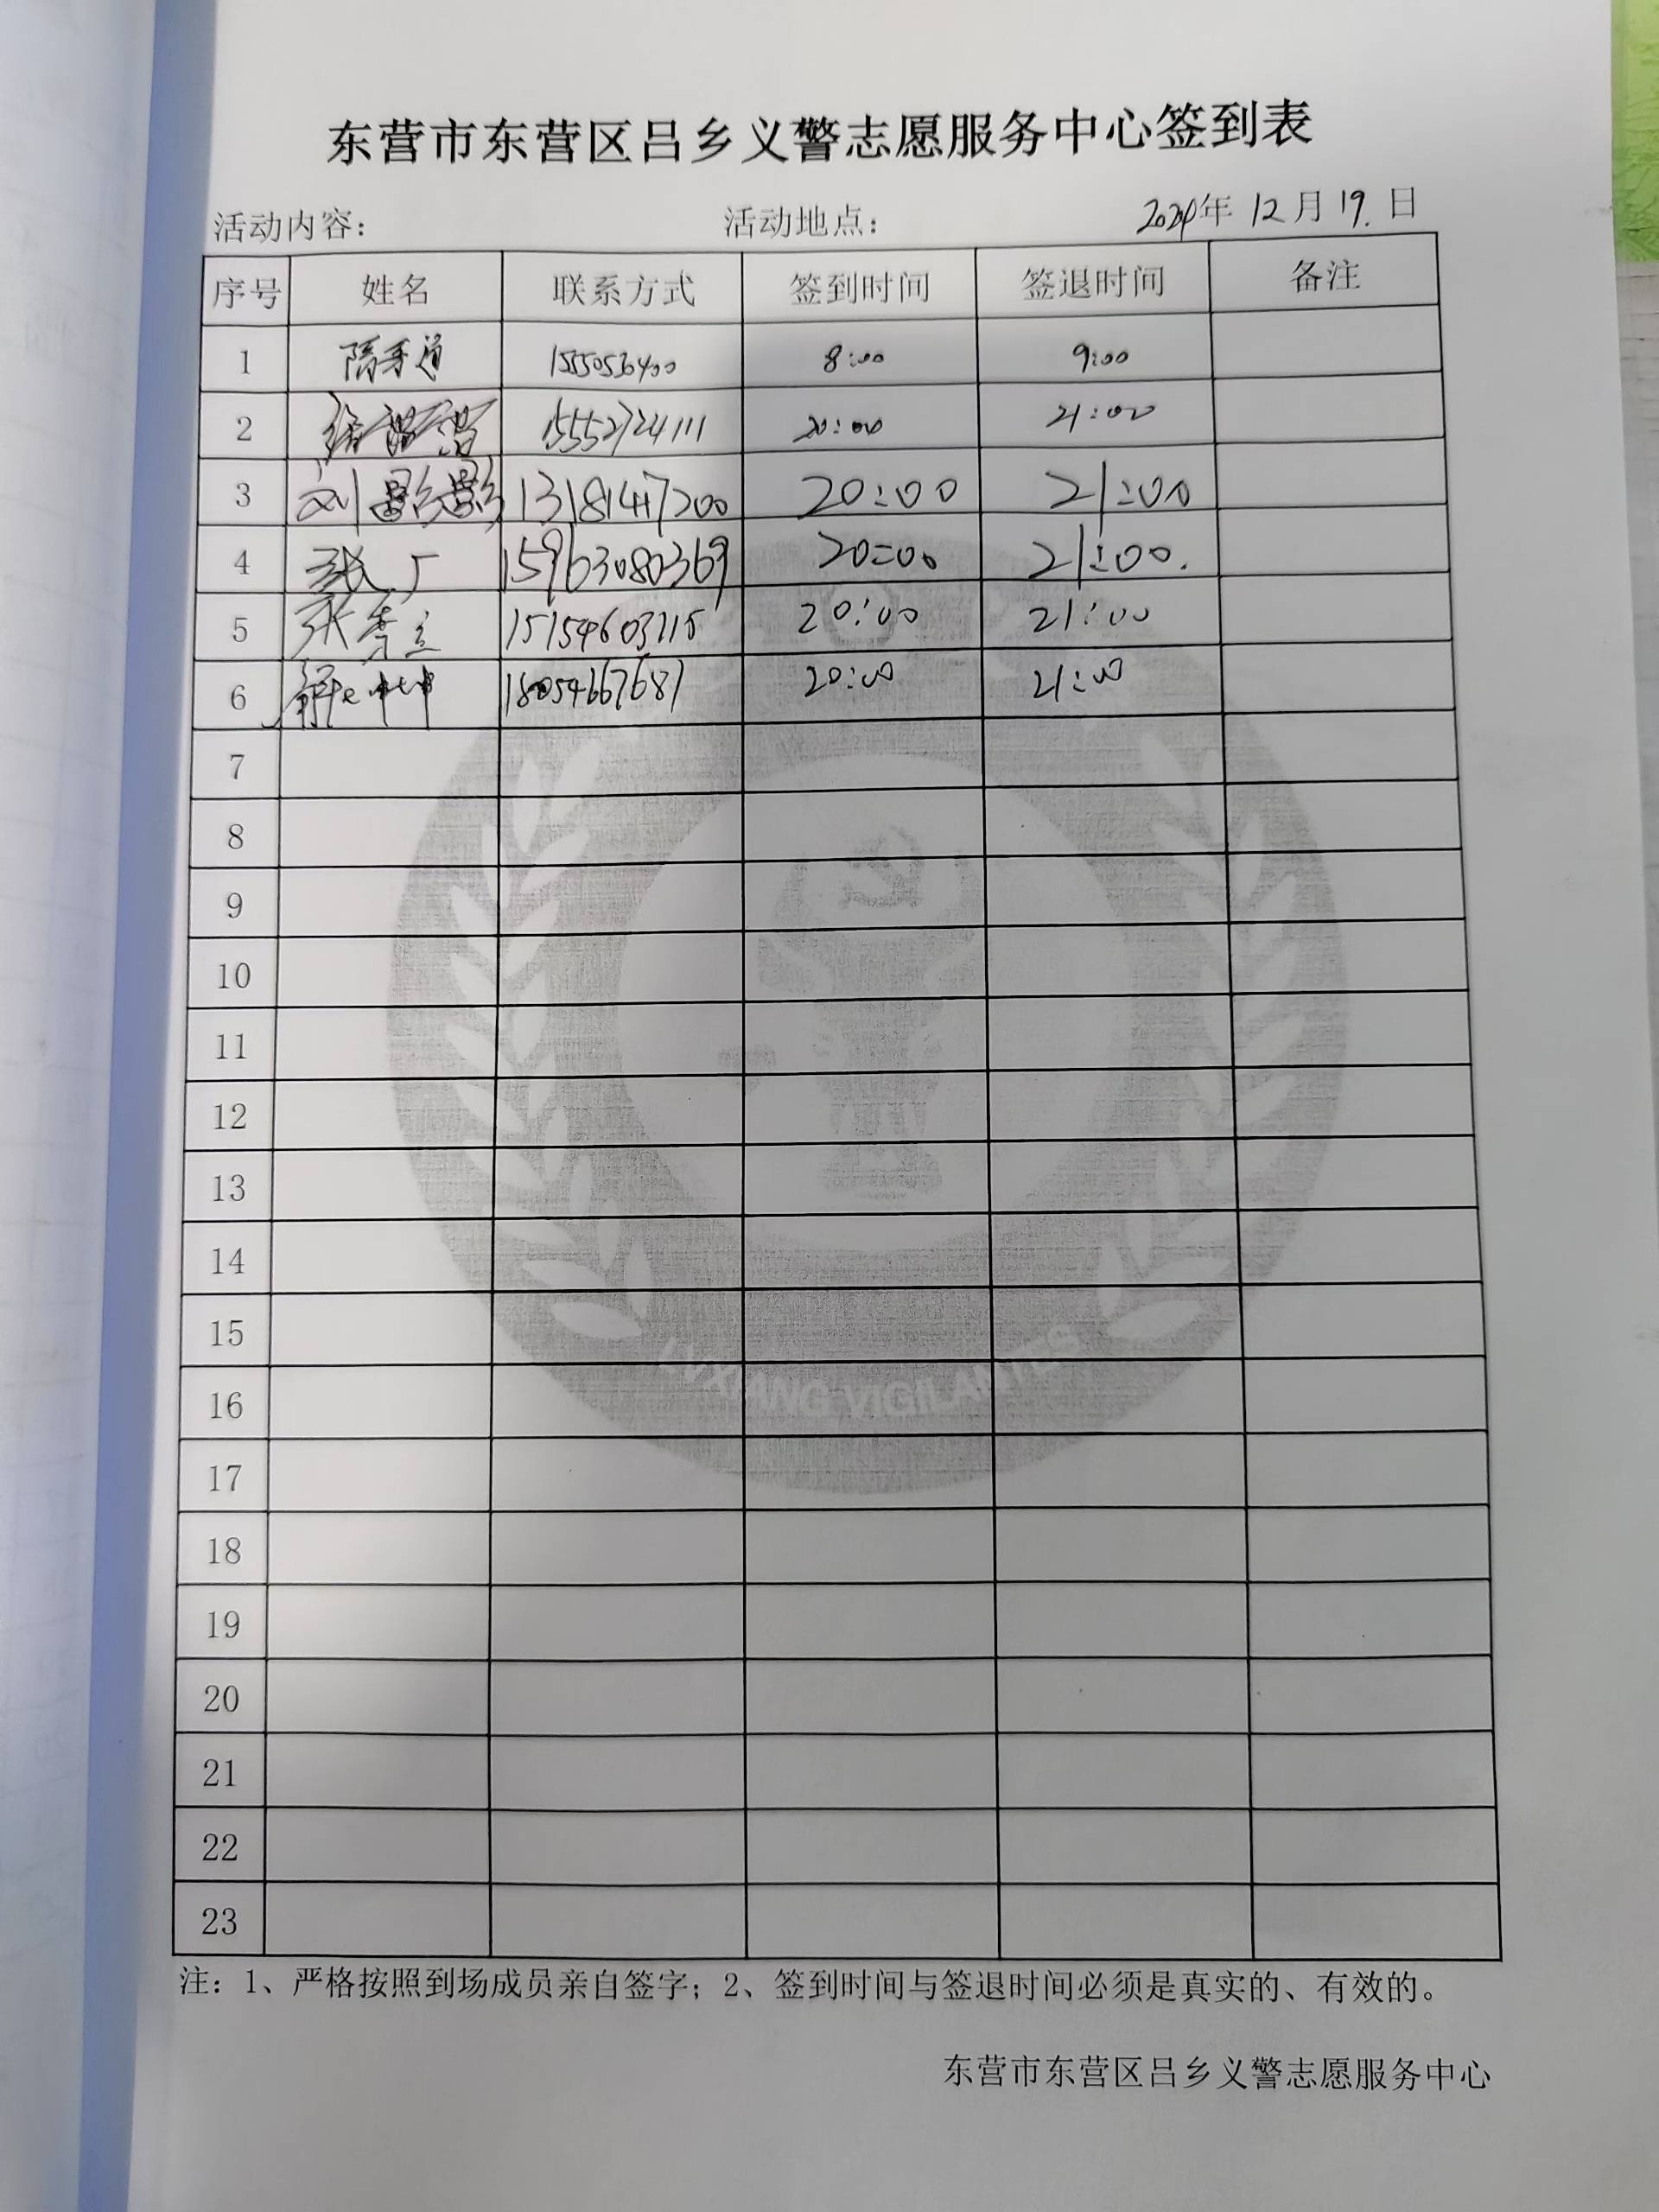 东营市东营区吕乡义警志愿服务中心签到表
活动内容: 活动地点: 2024年 12月 19. 日
序号 姓名 联系方式 签到时间 签退时间 备注
1 8:00 9:00
2 15552724111 20:00 21:00
3 刘影影 13181447200 20:00 21:00
4 张广 15963080369 20:00 21:00.
5 张秀兰 20:00 21:00
6 解忠坤 18054667687 20:00 21:00
7
8
9
10
11
12
13
14
15
16
17
18
19
20
21
22
23
LVXIANG VIGILANTES
注: 1、严格按照到场成员亲自签字; 2、签到时间与签退时间必须是真实的、有效的。
东营市东营区吕乡义警志愿服务中心